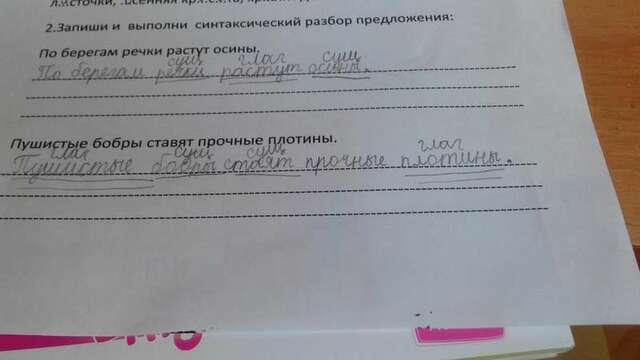 2.Запиши и выполни синтаксический разбор предложения:
По берегам речки растут осины.
сущ глаг сущ
По берегам речки растут осины.
Пушистые бобры ставят прочные плотины.
глаг сущ сущ глаг
Пушистые бобры ставят прочные плотины.